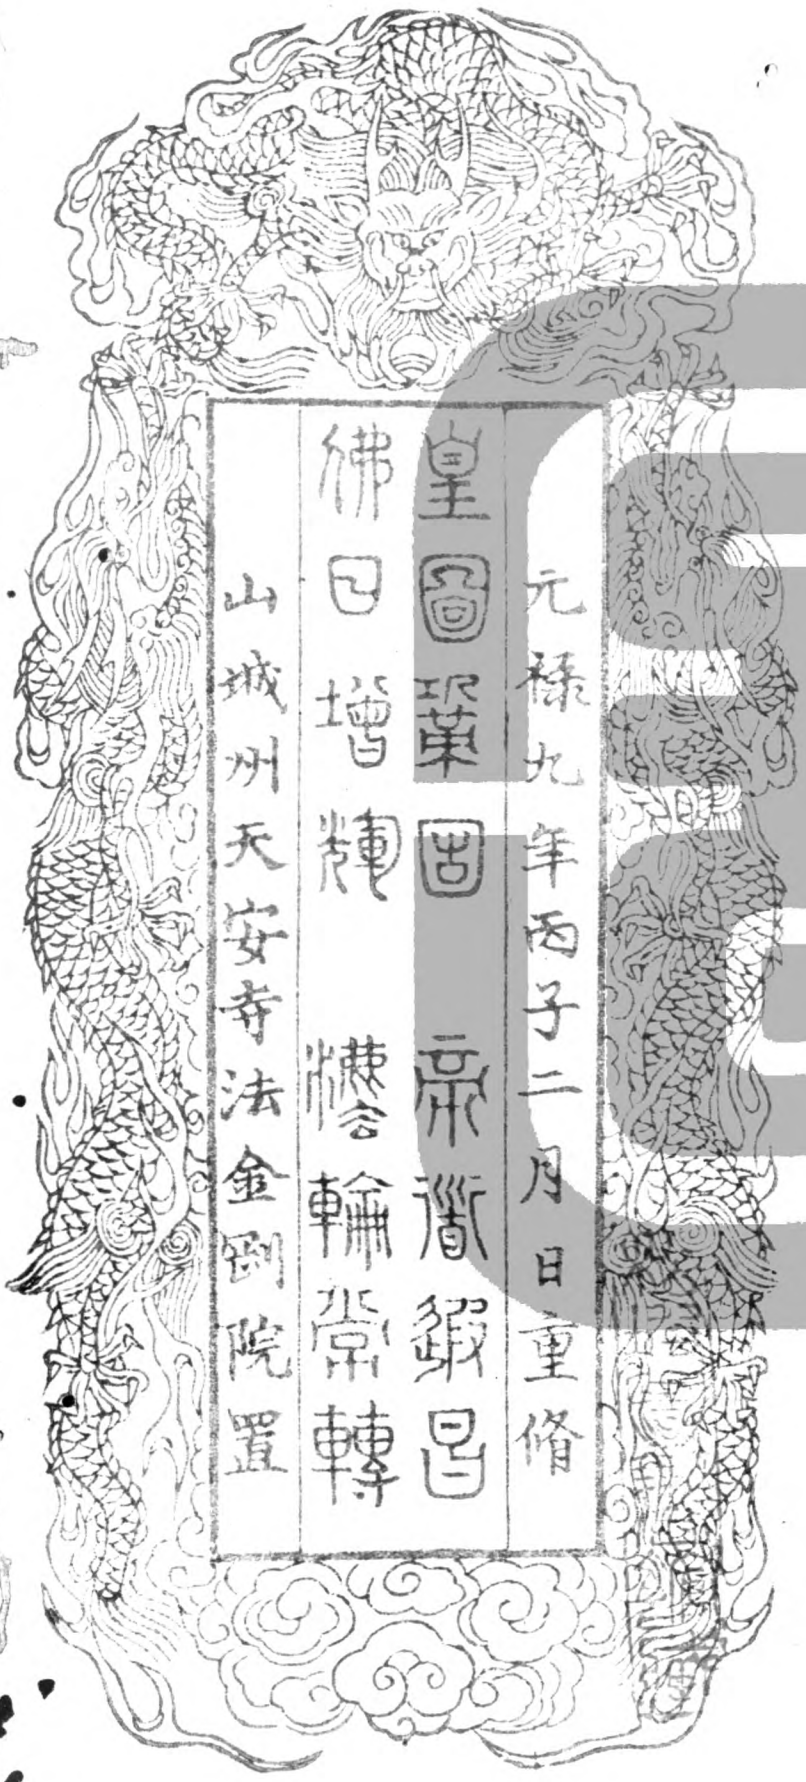 元祿九年丙子二月日重脩
皇圖鞏固　帝道遐昌
佛日增輝　法輪常轉
山城州天安寺法金剛院置